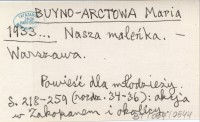 BUYNO-ARCTOWA Maria
1933... Nasza maleńka. –
Warszawa.
Powieść dla młodzieży.
S. 218-259 (rozdz. 34-36): akcja
w Zakopanem i okolicy.